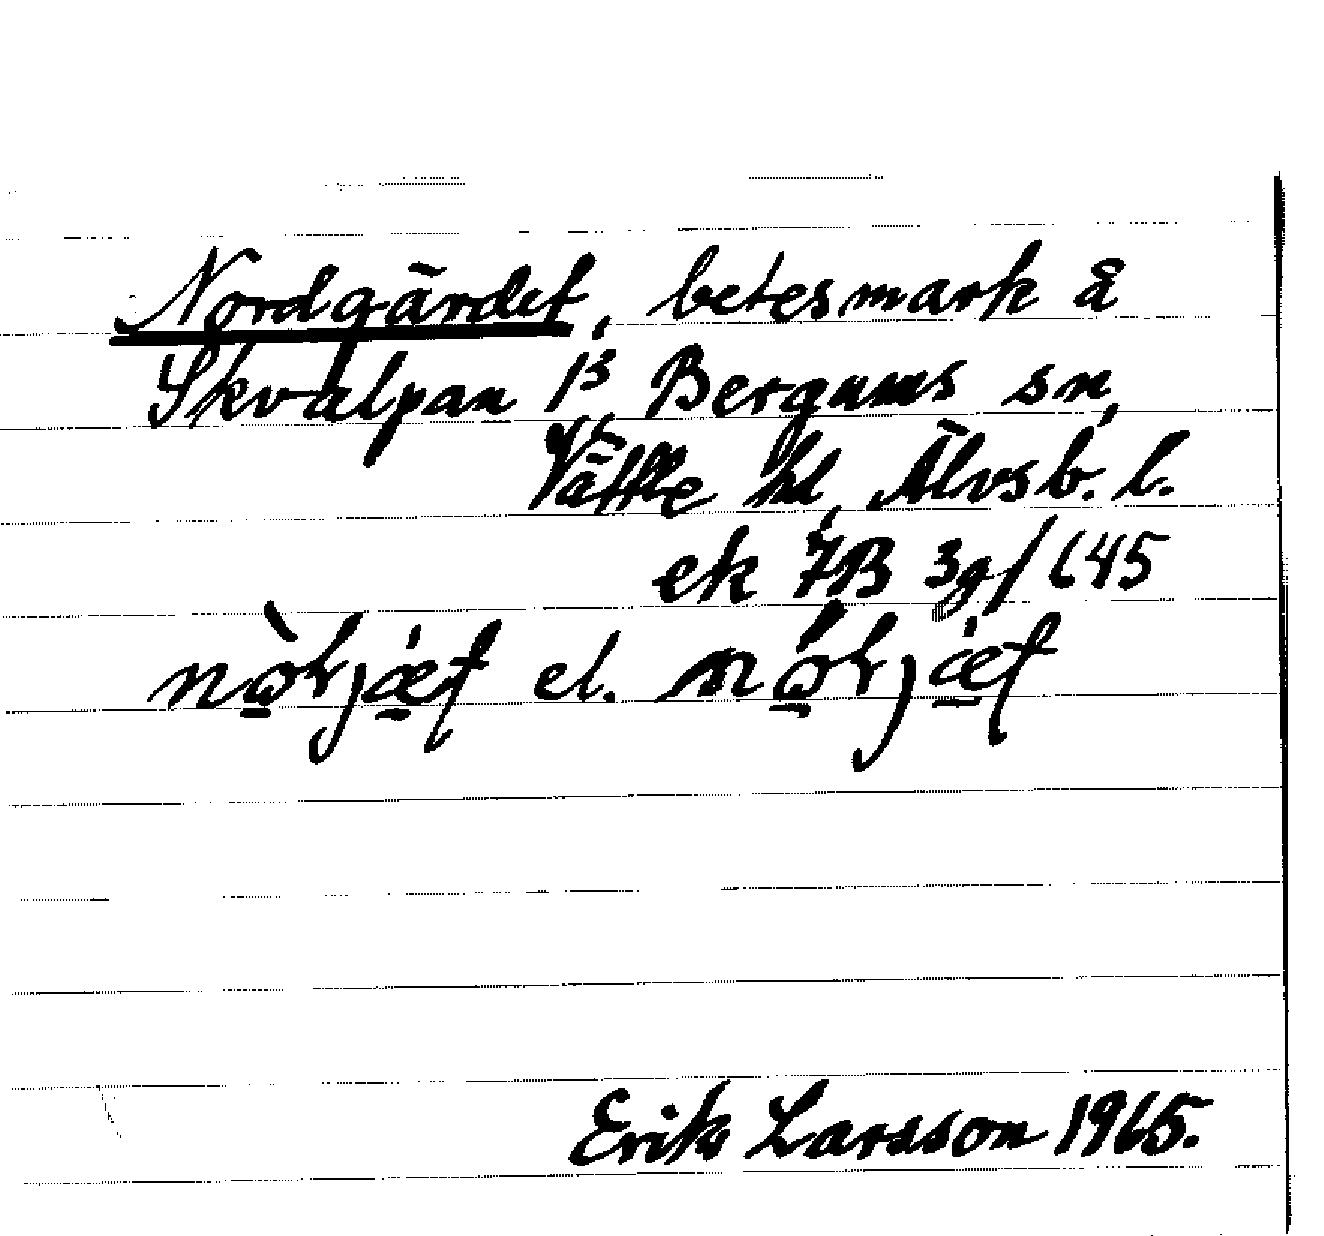 Nordgärdet, betesmark å
Skvalpan 1³, Bergums sn,
Vättle hd, Älvsb. l.
ek 7B 3g/645
el.
Erik Larsson 1965.